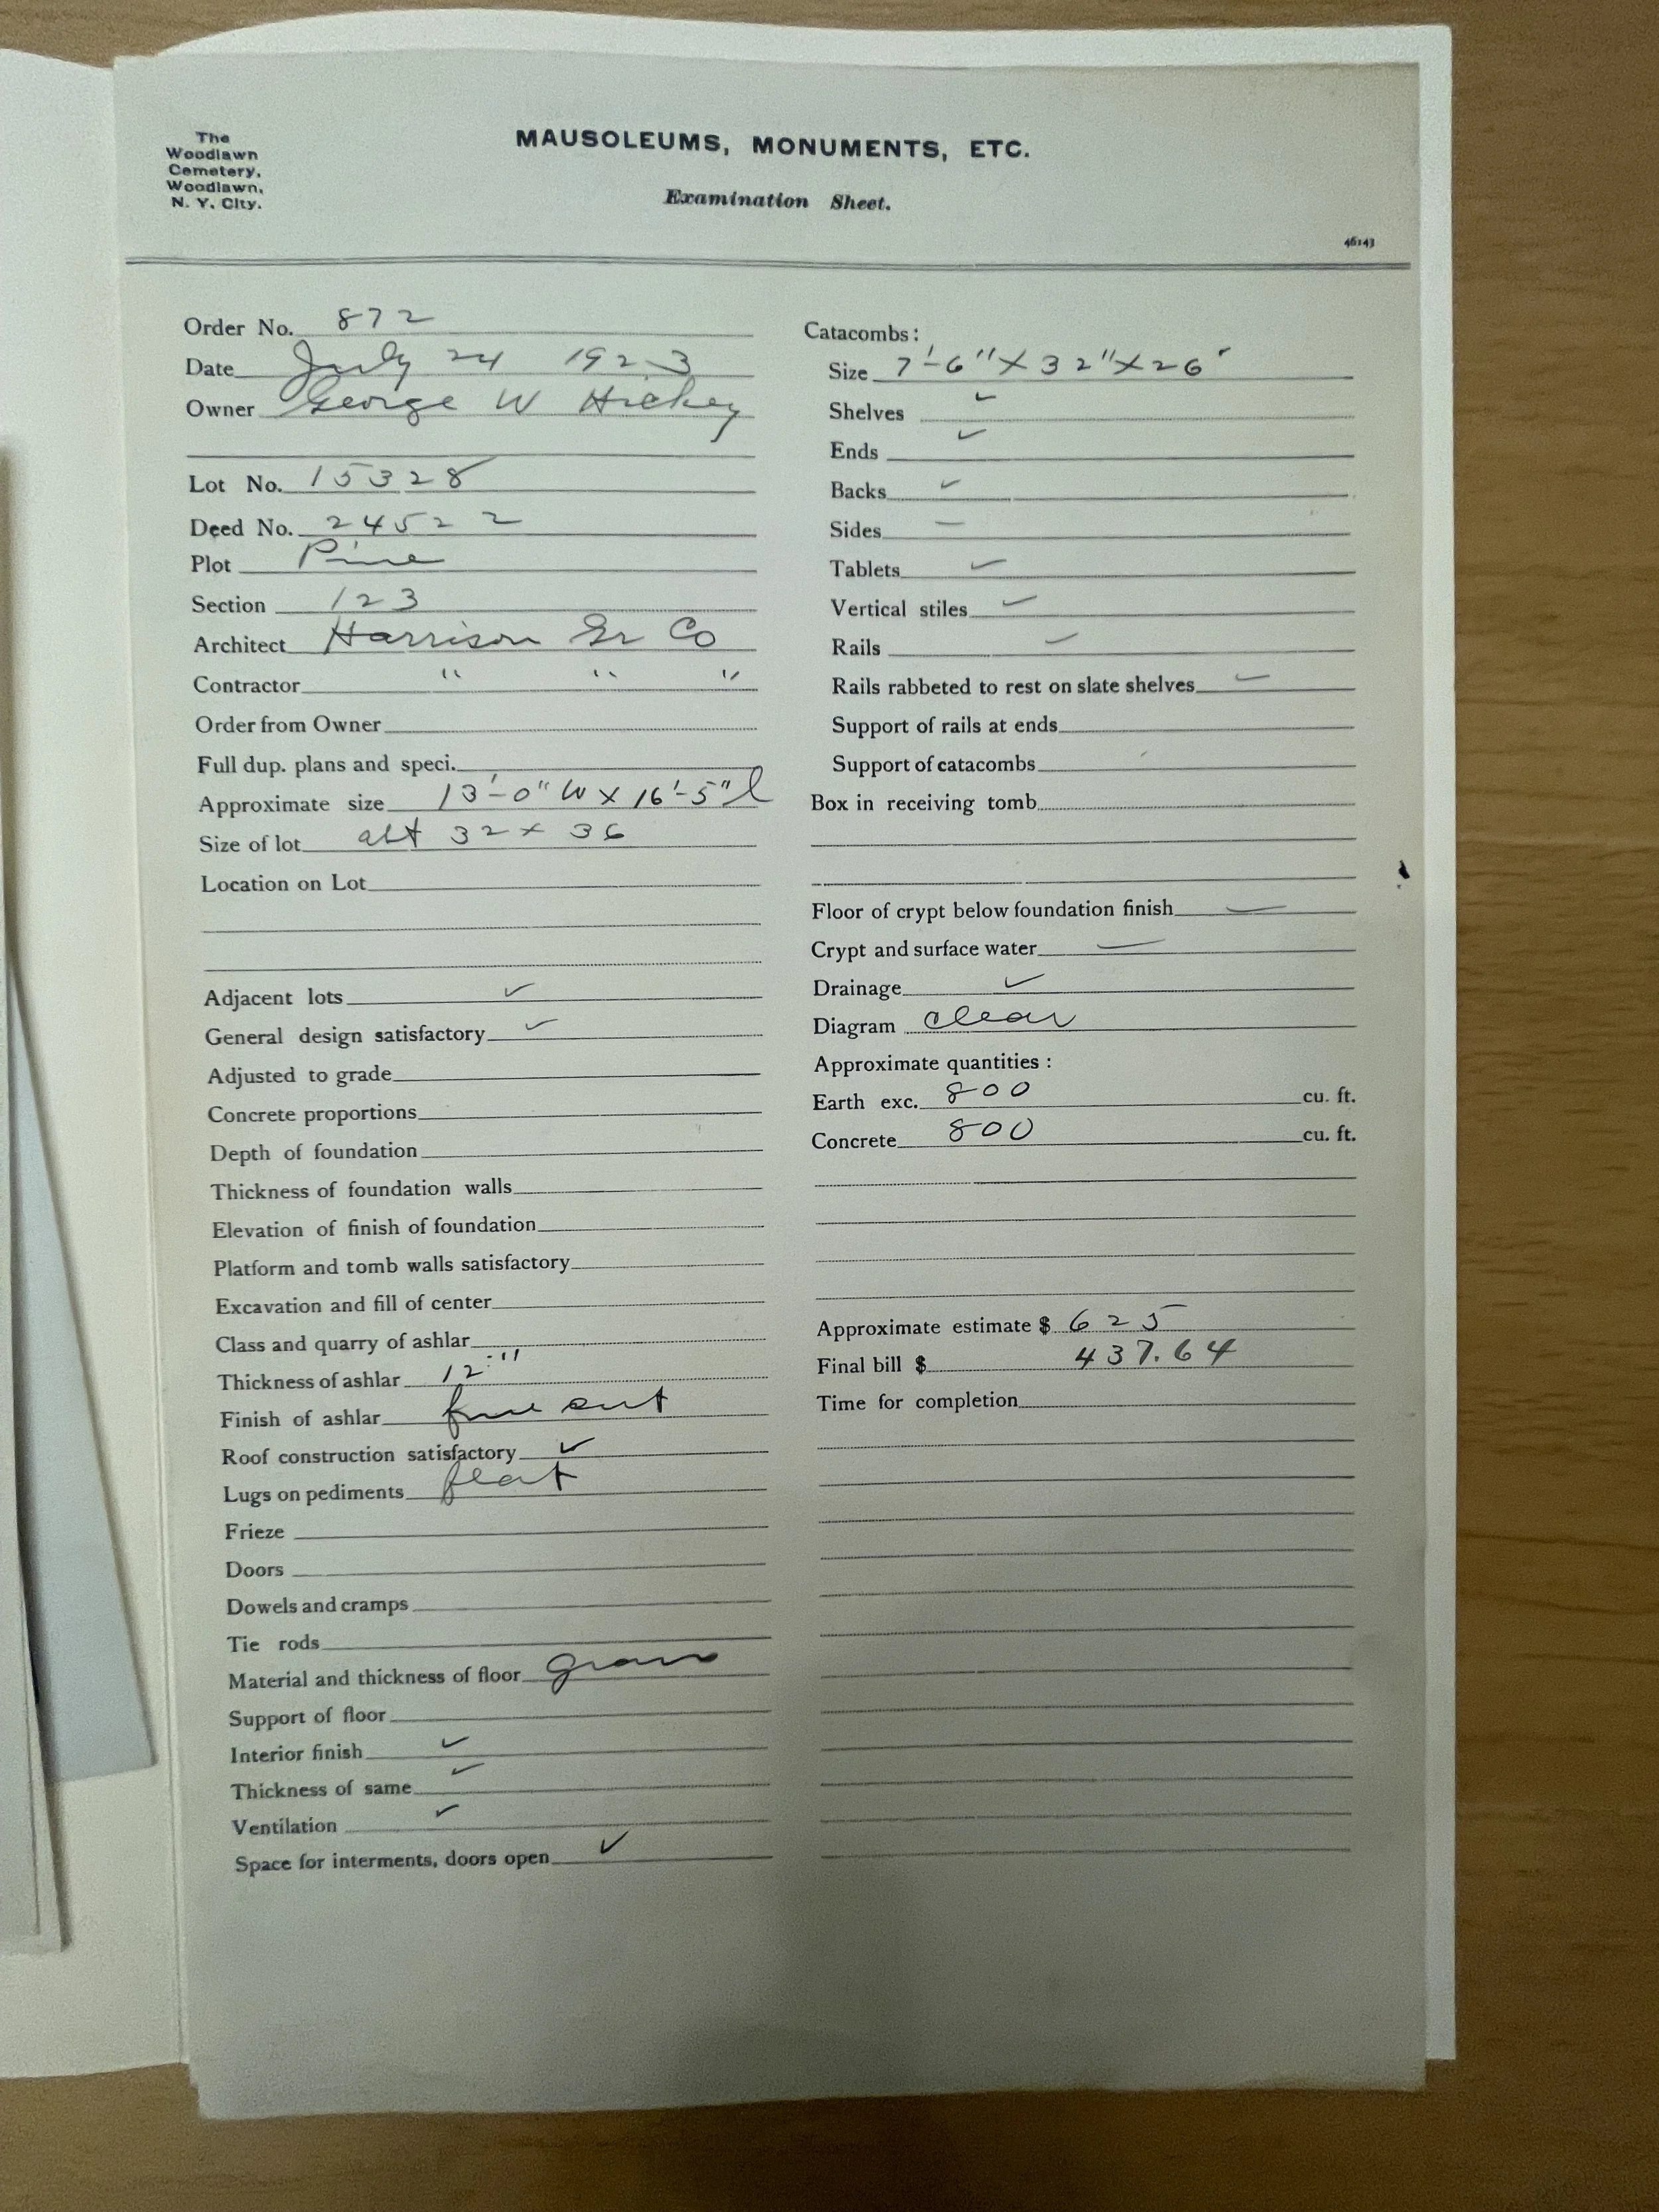 The
Woodlawn
Cemetery,
Woodlawn,
N. Y. City.
MAUSOLEUMS, MONUMENTS, ETC.
Examination Sheet.
46143
Order No. 872
Date July 24 1923
Owner George W Hickey
Lot No. 15328
Deed No. 24522
Plot Pine
Section 123
Architect Harrison Gr Co
Contractor " " "
Order from Owner
Full dup. plans and speci.
Approximate size 13'-0" W x 16'-5" l
Size of lot 32 x 36
Location on Lot
Adjacent lots ✓
General design satisfactory ✓
Adjusted to grade
Concrete proportions
Depth of foundation
Thickness of foundation walls
Elevation of finish of foundation
Platform and tomb walls satisfactory
Excavation and fill of center
Class and quarry of ashlar
Thickness of ashlar 12"
Finish of ashlar fine cut
Roof construction satisfactory ✓
Lugs on pediments flat
Frieze
Doors
Dowels and cramps
Tie rods
Material and thickness of floor
Support of floor
Interior finish ✓
Thickness of same ✓
Ventilation ✓
Space for interments, doors open ✓
Catacombs:
Size 7'-6" X 32" X 26"
Shelves ✓
Ends ✓
Backs ✓
Sides –
Tablets ✓
Vertical stiles ✓
Rails ✓
Rails rabbeted to rest on slate shelves ✓
Support of rails at ends
Support of catacombs
Box in receiving tomb
Floor of crypt below foundation finish –
Crypt and surface water –
Drainage ✓
Diagram clear
Approximate quantities:
Earth exc. 800 cu. ft.
Concrete 800 cu. ft.
Approximate estimate $ 625
Final bill $ 437.64
Time for completion